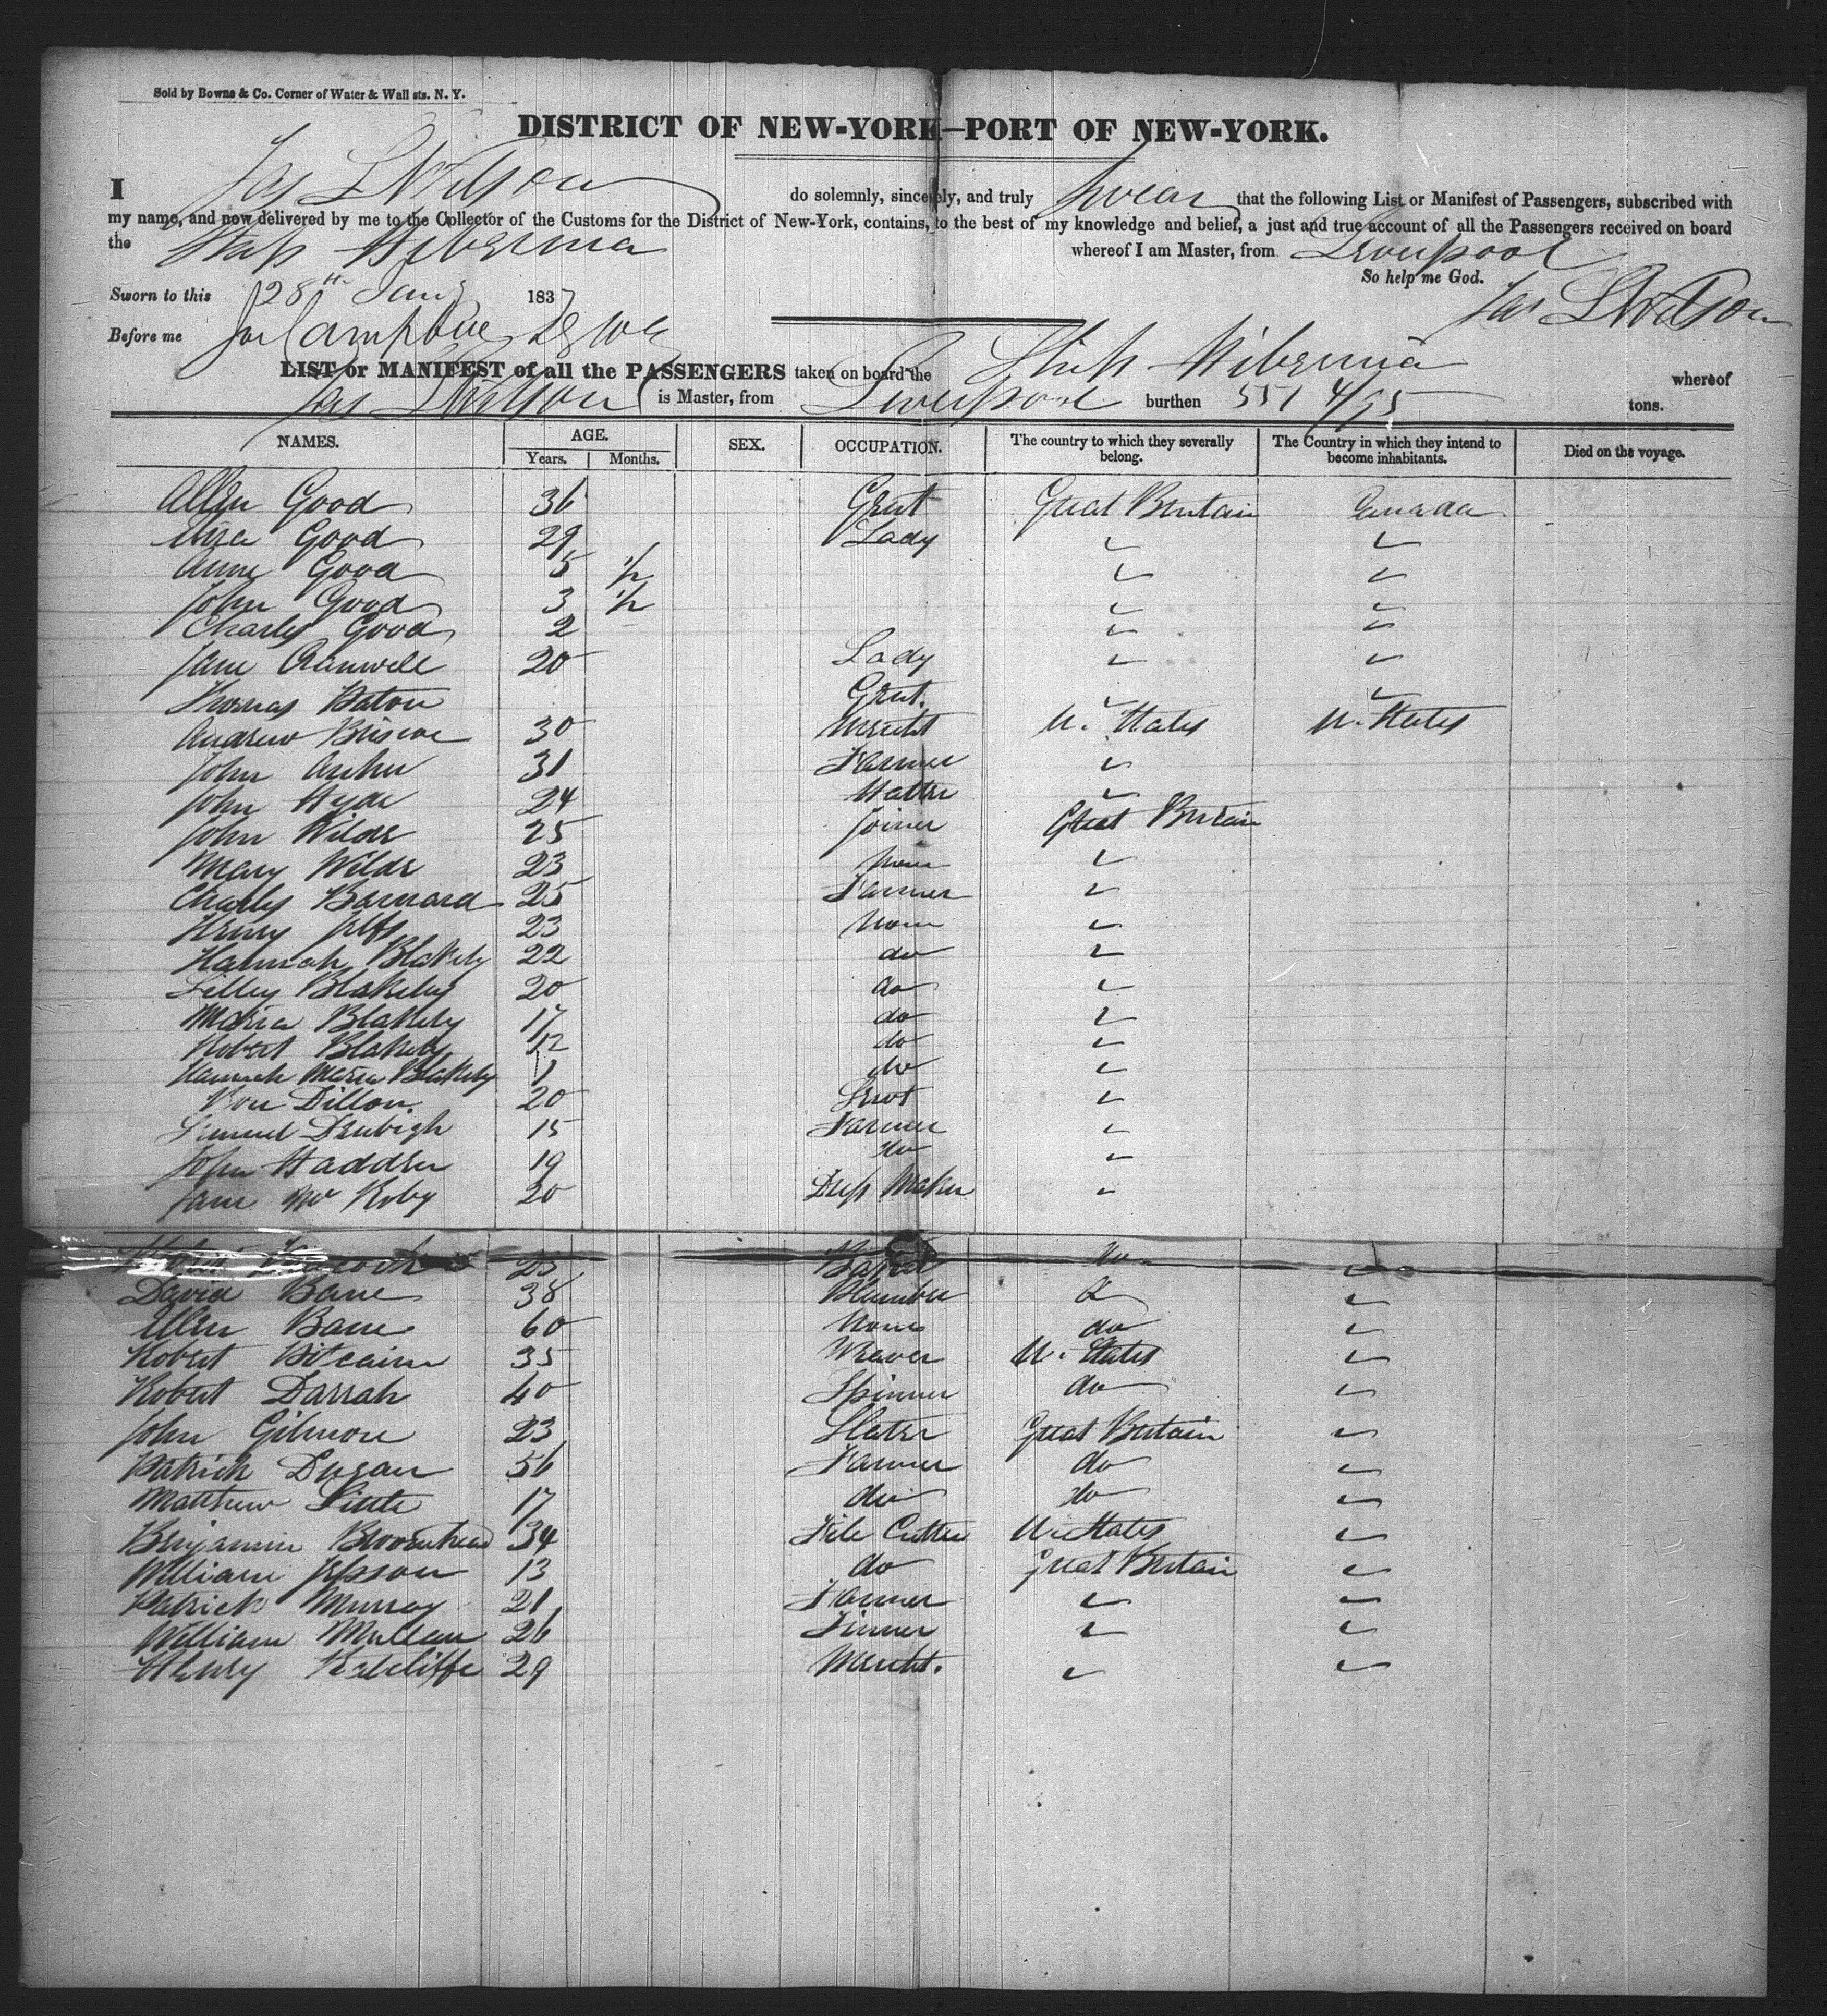 Sold by Bowne & Co. Corner of Water & Wall sts. N. Y.
DISTRICT OF NEW-YORK—PORT OF NEW-YORK.
I Jas L Wilson do solemnly, sincerely, and truly swear that the following List or Manifest of Passengers, subscribed with
my name, and now delivered by me to the Collector of the Customs for the District of New-York, contains, to the best of my knowledge and belief, a just and true account of all the Passengers received on board
the Ship Hibernia whereof I am Master, from Liverpool
So help me God.
Sworn to this 28th Jany 1837 Jas L Wilson
Before me
LIST or MANIFEST of all the PASSENGERS taken on board the Ship Hibernia whereof
Jas L Wilson is Master, from Liverpool burthen 551 4/95 tons.
NAMES. AGE. Years. Months. SEX. OCCUPATION. The country to which they severally belong. The Country in which they intend to become inhabitants. Died on the voyage.
Allen Good 36 Gent Great Britain Canada
Good 29 Lady
Anne Good 5 1/2
John Good 3 1/2
Charles Good 2
Jane Cranwell 20 Lady
Thomas Paton Gent.
Andrew Briscoe 30 Mercht U. States U. States
John Archer 31 Farmer
John Hyde 24 Hatter
John Wilde 25 Joiner Great Britain
Mary Wilde 23 none
Charles Barnard 25 Farmer
Henry 23 none
Hannah Blakely 22 do
Lilley Blakeley 20 do
Maria Blakely 17 do
Robert Blakely 12 do
Hannah Maria Blakely 1 do
Dillon. 20 Servt
Samuel Denbigh 15 Farmer
John Hadden 19 do
Jane Mc Roby 20 Dress Maker
25 Baker do
David Bane 38 Plumber do
Ellen Bane 60 None do
Robert Pitcairn 35 Weaver U. States
Robert Darrah 40 Spinner do
John Gilmore 23 Slater Great Britain
Patrick Dugan 56 Farmer do
Matthew Little 17 do do
Benjamin Broomhead 34 File Cutter U. States
William Jepson 13 do Great Britain
Patrick Murray 21 Farmer
William Mullen 26 Tinner
Henry Ratcliffe 29 Mercht.